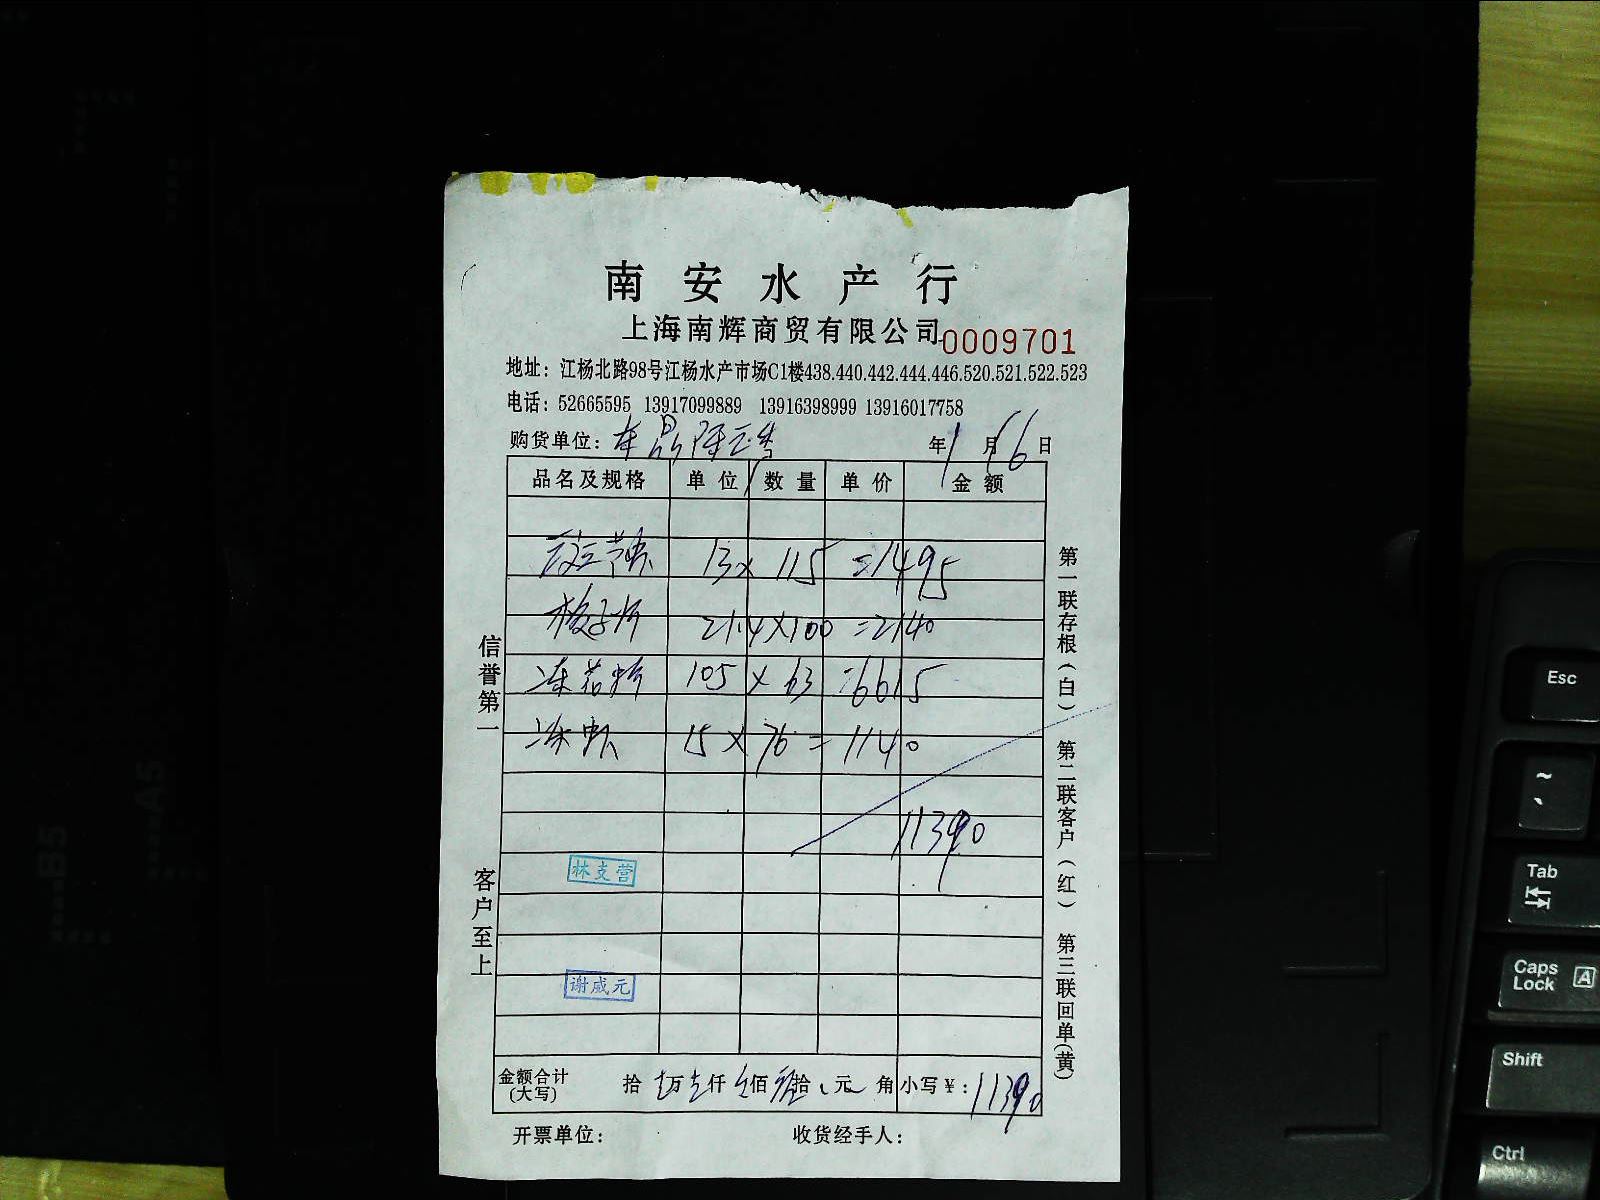 南安水产行
上海南辉商贸有限公司 0009701
地址：江杨北路98号江杨水产市场C1楼438.440.442.444.446.520.521.522.523
电话：52665595 13917099889 13916398999 13916017758
购货单位： 年1月16日
品名及规格 单位 数量 单价 金额
13× 115 =1495
21.4×100 =2140
105 × 63 =6615
冻虾 15 × 76 = 1140
11390
林支营
谢成元
金额合计(大写) 拾 万 仟 佰 拾 元 角 小写￥：11390
开票单位： 收货经手人：
信誉第一
客户至上
第一联存根(白) 第二联客户(红) 第三联回单(黄)
Esc
~
`
Tab
Caps Lock A
Shift
Ctrl
B5
A5